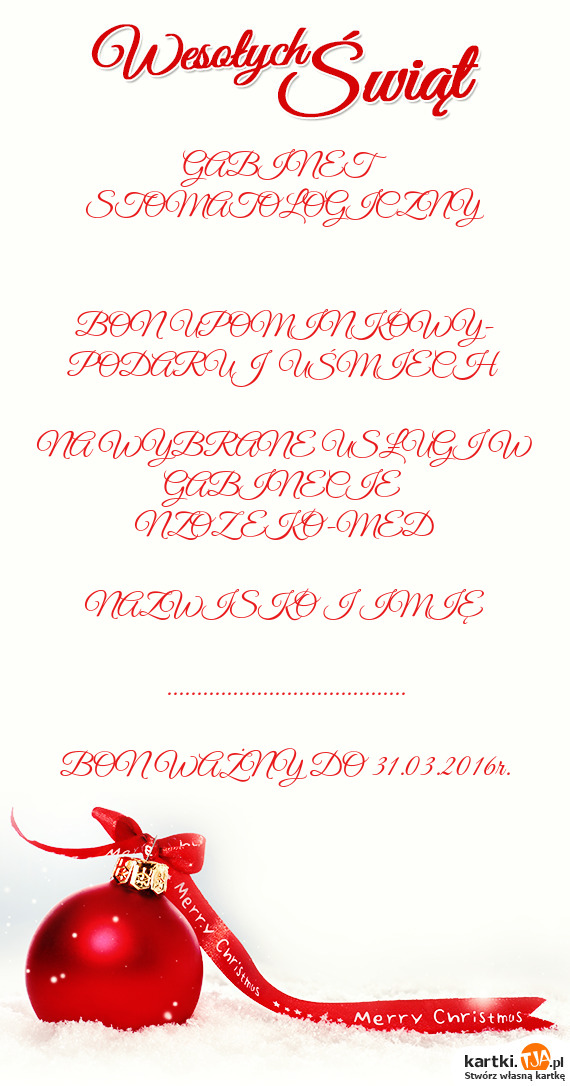 Wesołych Świąt
GABINET
STOMATOLOGICZNY
BON UPOMINKOWY-
PODARUJ UŚMIECH
NA WYBRANE USŁUGI W
GABINECIE
NZOZ EKO-MED
NAZWISKO I IMIĘ
........................................
BON WAŻNY DO 31.03.2016r.
Merry Christmas
Merry Christmas
kartki.TJA.pl
Stwórz własną kartkę